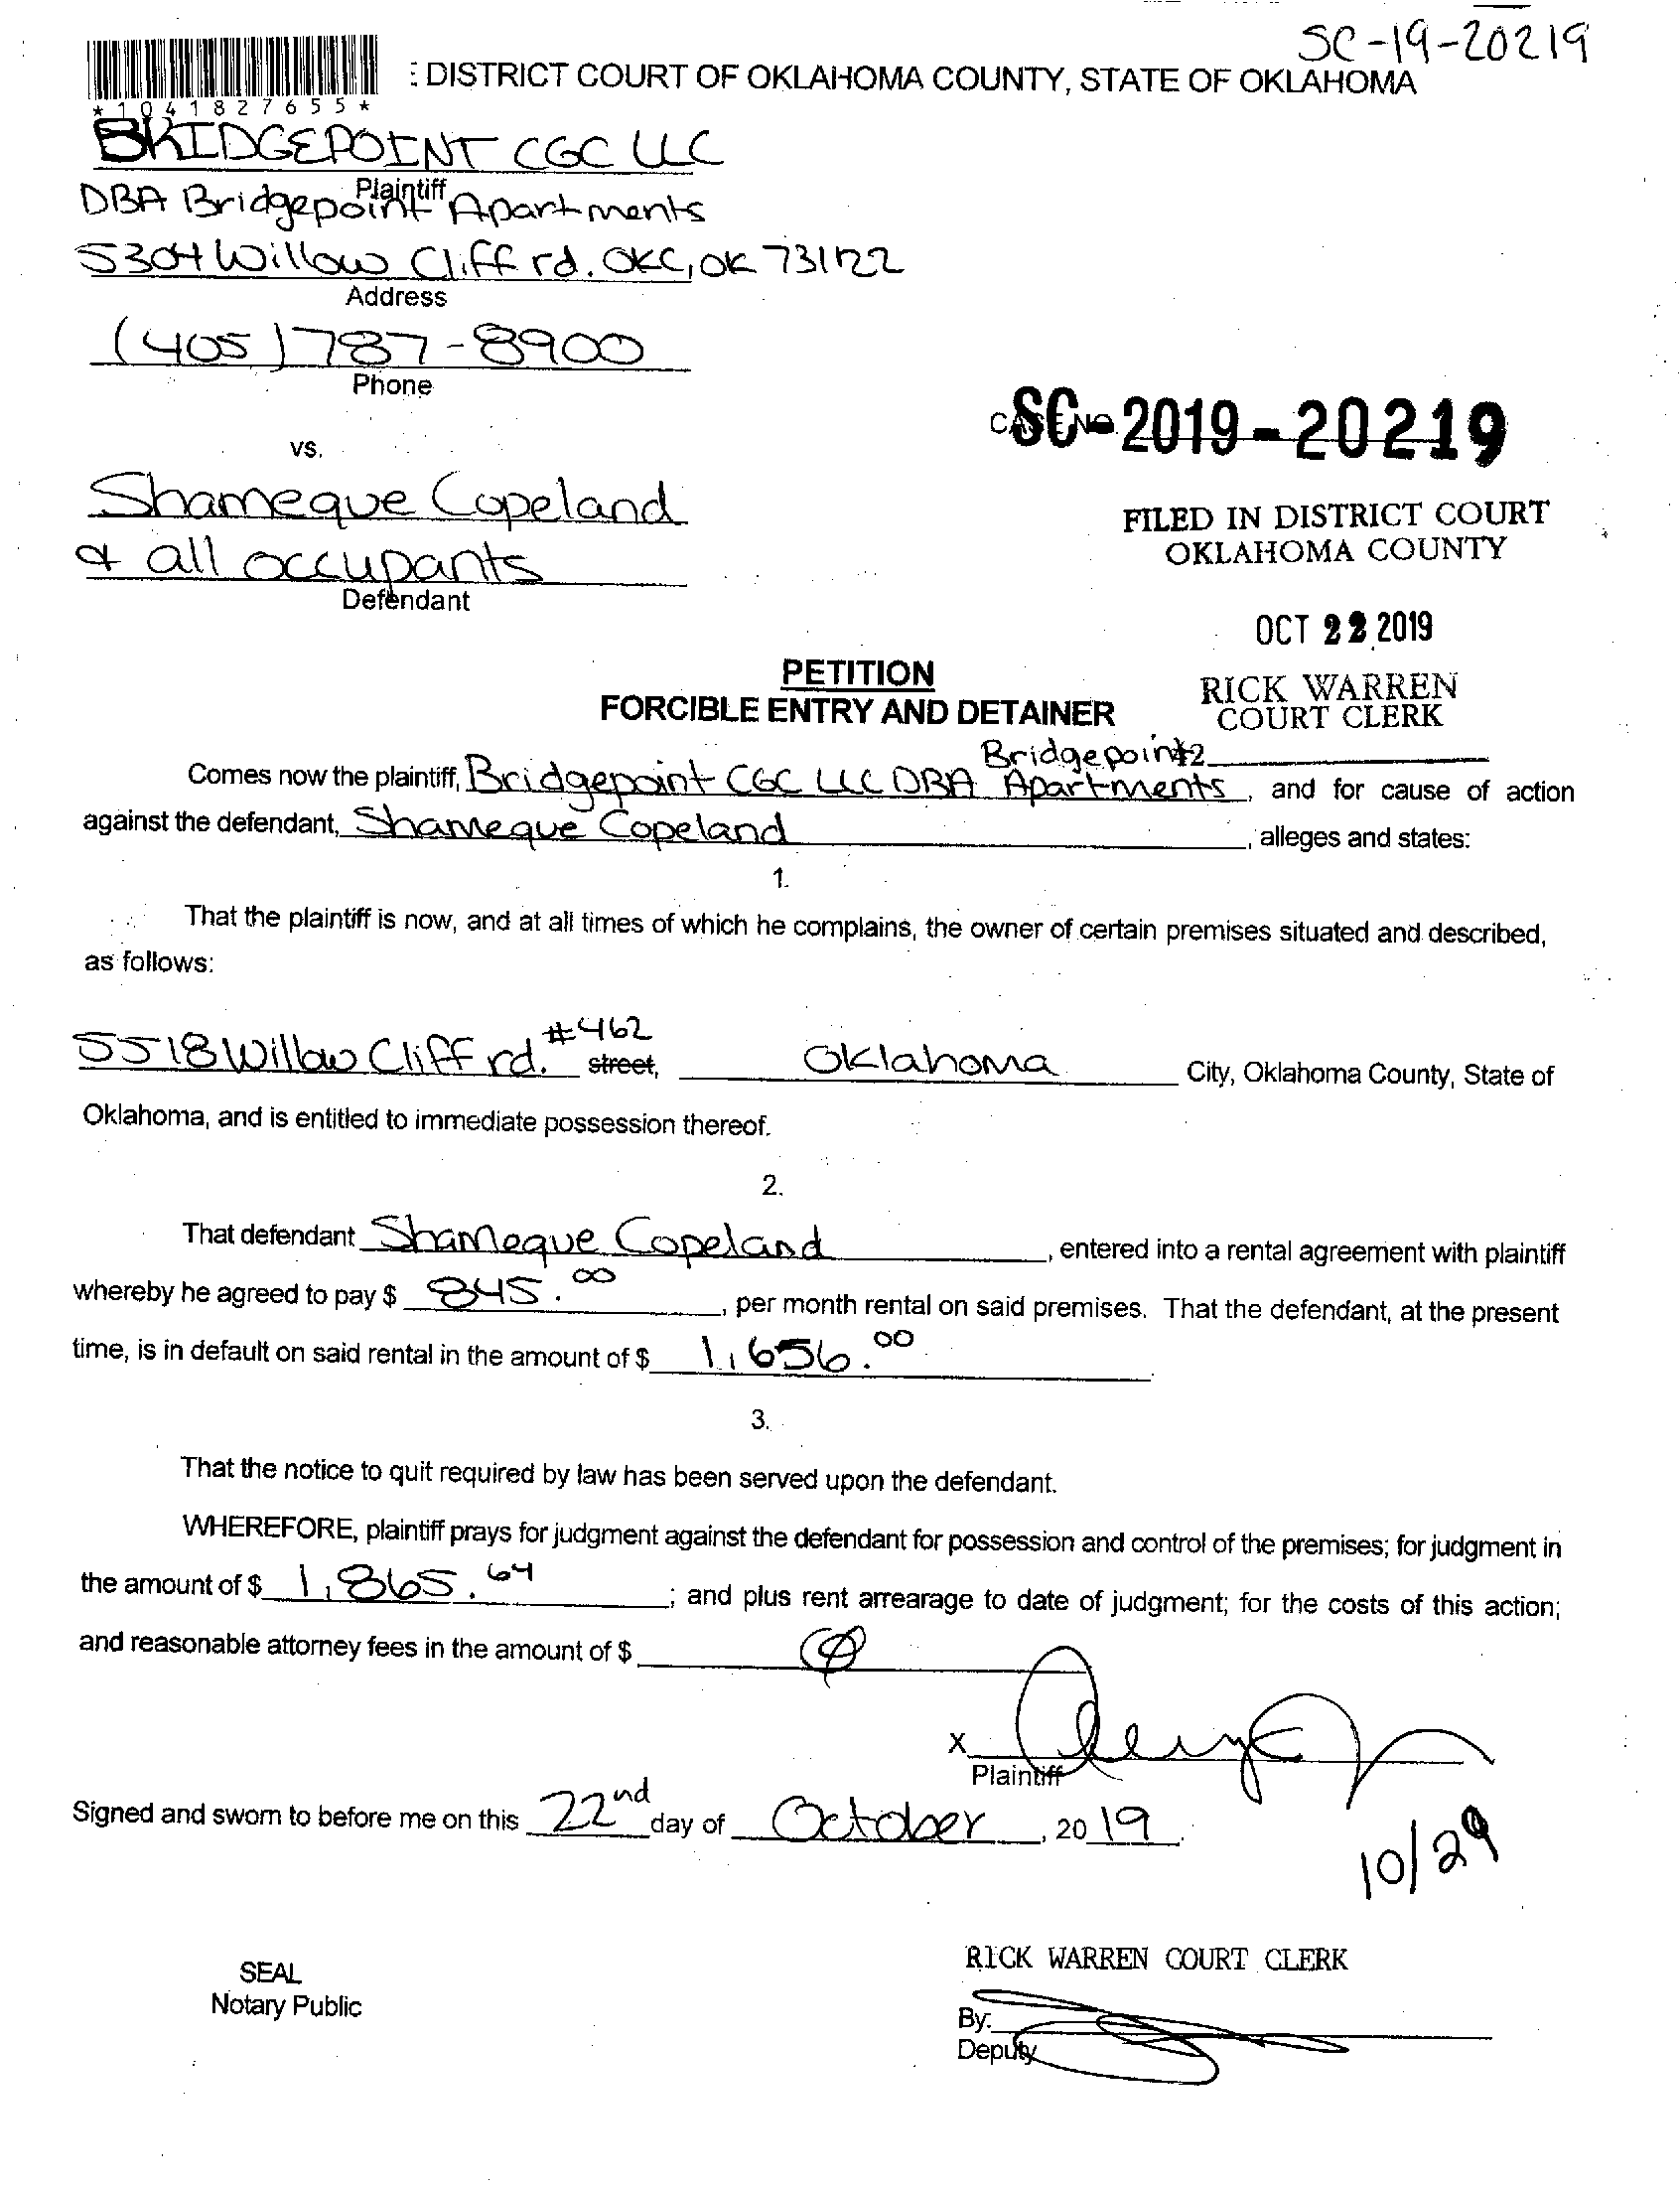 SC-19-20219
: DISTRICT COURT OF OKLAHOMA COUNTY, STATE OF OKLAHOMA
*1041827655*
BRIDGEPOINT CGC LLC
Plaintiff
DBA Bridgepoint Apartments
5304 Willow Cliff rd. OKC, OK 73122
Address
(405) 787-8900
Phone
CASE NO. SC-2019-20219
vs.
Shameque Copeland
& all occupants
Defendant
FILED IN DISTRICT COURT
OKLAHOMA COUNTY
OCT 22 2019
RICK WARREN
COURT CLERK
PETITION
FORCIBLE ENTRY AND DETAINER
Comes now the plaintiff, Bridgepoint CGC LLC DBA Bridgepoint Apartments, and for cause of action
against the defendant, Shameque Copeland, alleges and states:
1.
That the plaintiff is now, and at all times of which he complains, the owner of certain premises situated and described,
as follows:
5518 Willow Cliff rd. #462 street, Oklahoma City, Oklahoma County, State of
Oklahoma, and is entitled to immediate possession thereof.
2.
That defendant Shameque Copeland, entered into a rental agreement with plaintiff
whereby he agreed to pay $ 845.00, per month rental on said premises. That the defendant, at the present
time, is in default on said rental in the amount of $ 1,656.00
3.
That the notice to quit required by law has been served upon the defendant.
WHEREFORE, plaintiff prays for judgment against the defendant for possession and control of the premises; for judgment in
the amount of $ 1,865.64; and plus rent arrearage to date of judgment; for the costs of this action;
and reasonable attorney fees in the amount of $
X
Plaintiff
Signed and sworn to before me on this 22nd day of October, 2019.
10/29
RICK WARREN COURT CLERK
SEAL
Notary Public
By:
Deputy